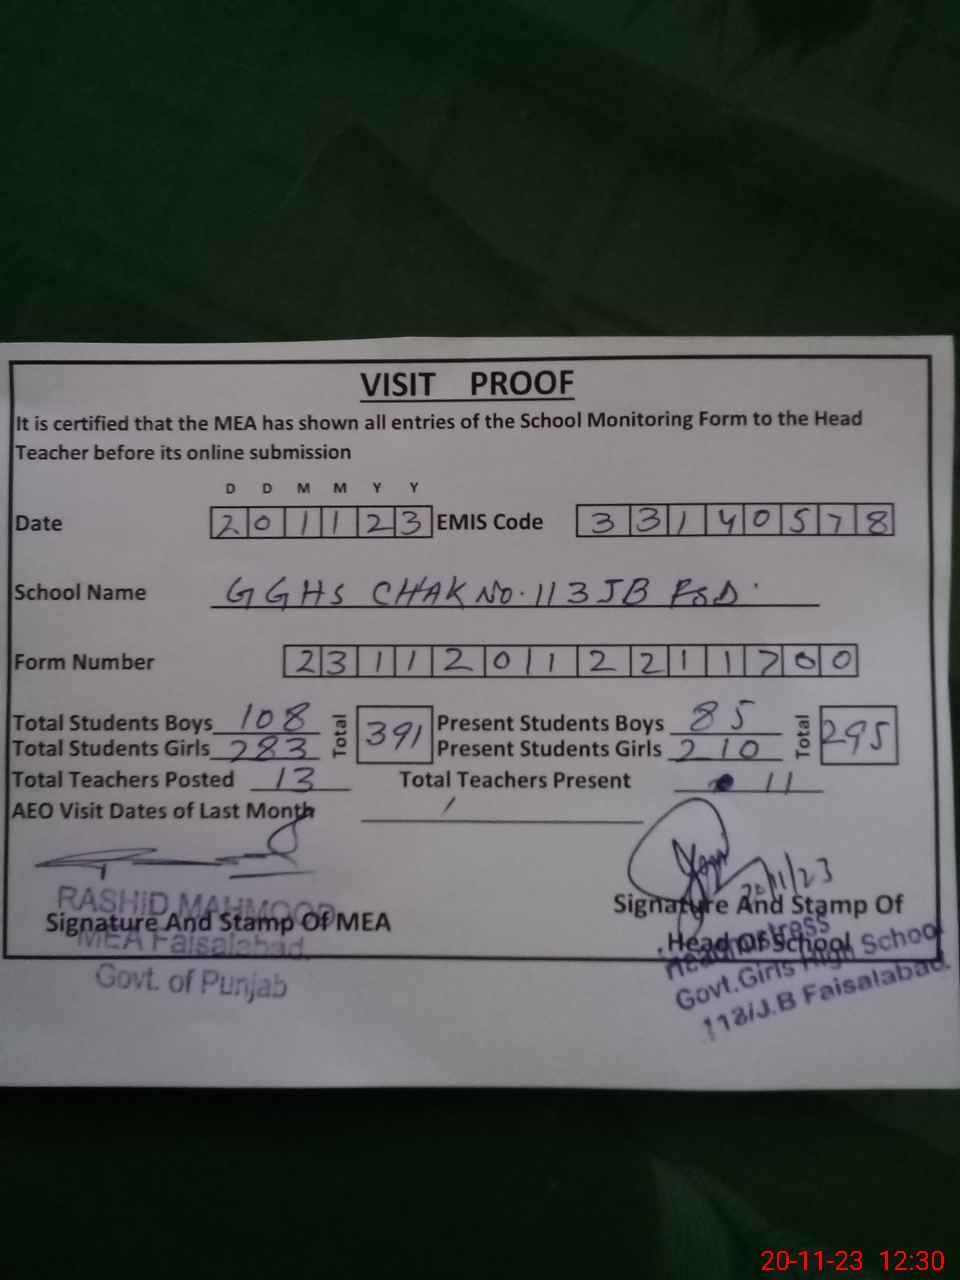 VISIT PROOF
It is certified that the MEA has shown all entries of the School Monitoring Form to the Head
Teacher before its online submission
D D M M Y Y
Date 2 0 1 1 2 3 EMIS Code 3 3 1 4 0 5 7 8
School Name GGHS CHAK NO. 113 JB FSD
Form Number 2 3 1 1 2 0 1 1 2 2 1 1 7 0 0
Total Students Boys 108 Total 391 Present Students Boys 85 Total 295
Total Students Girls 283 Present Students Girls 210
Total Teachers Posted 13 Total Teachers Present 11
AEO Visit Dates of Last Month /
20/11/23
RASHID MAHMOOD
Signature And Stamp Of MEA
MEA Faisalabad
Govt. of Punjab
Signature And Stamp Of
Head Of School
Headmistress
Govt.Girls High School
113/J.B Faisalabad.
20-11-23 12:30